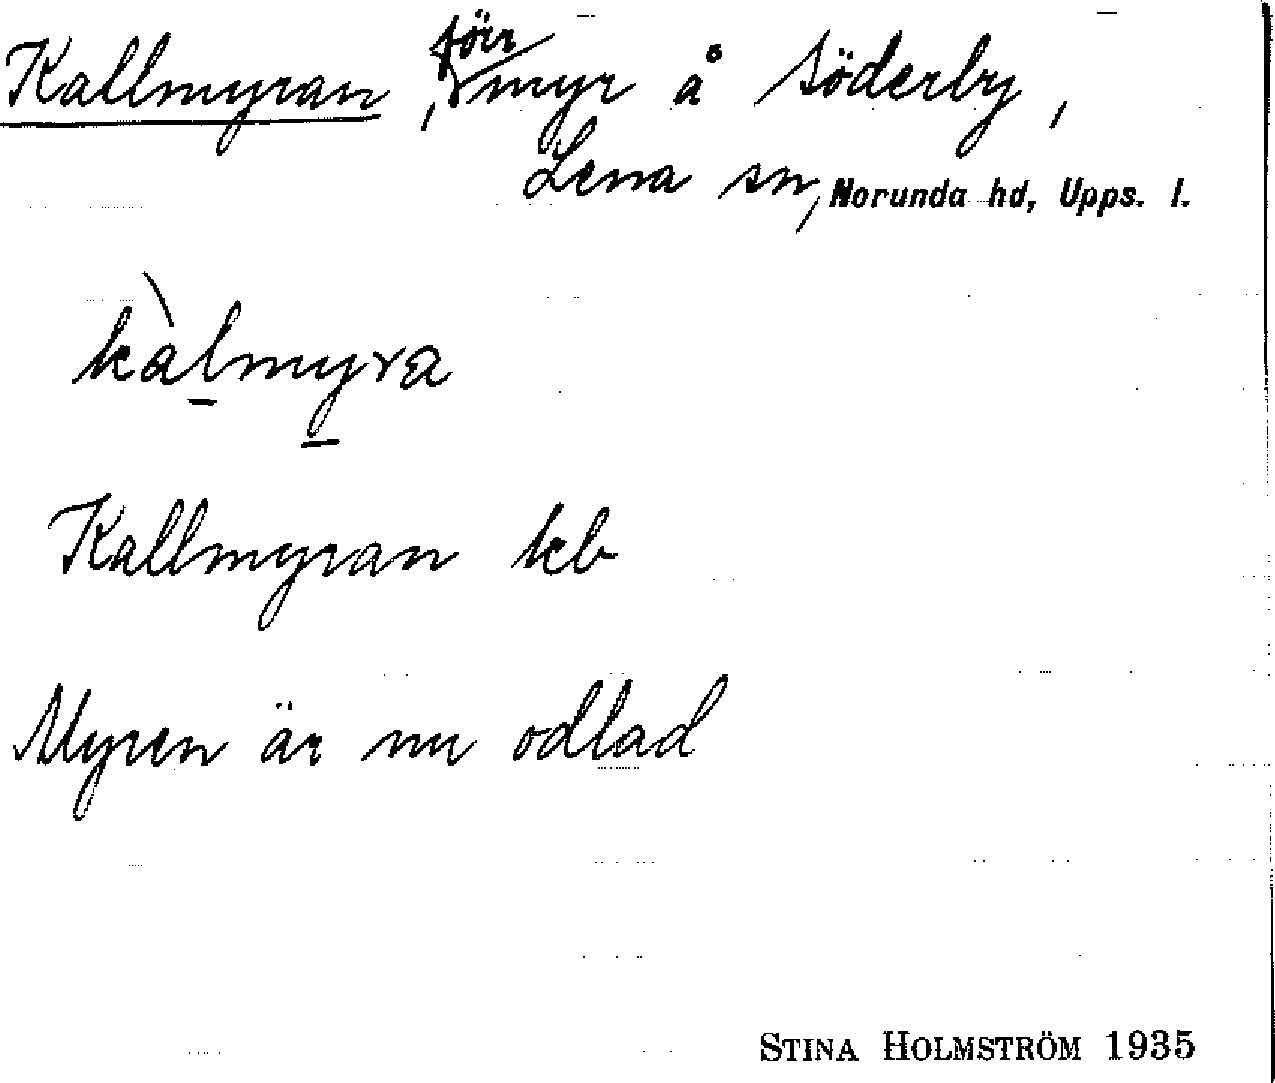 Kallmyran, förr myr å Söderby,
Lena sn, Norunda hd, Upps. l.
kàlmyra
Kallmyran kb
Myren är nu odlad
STINA HOLMSTRÖM 1935